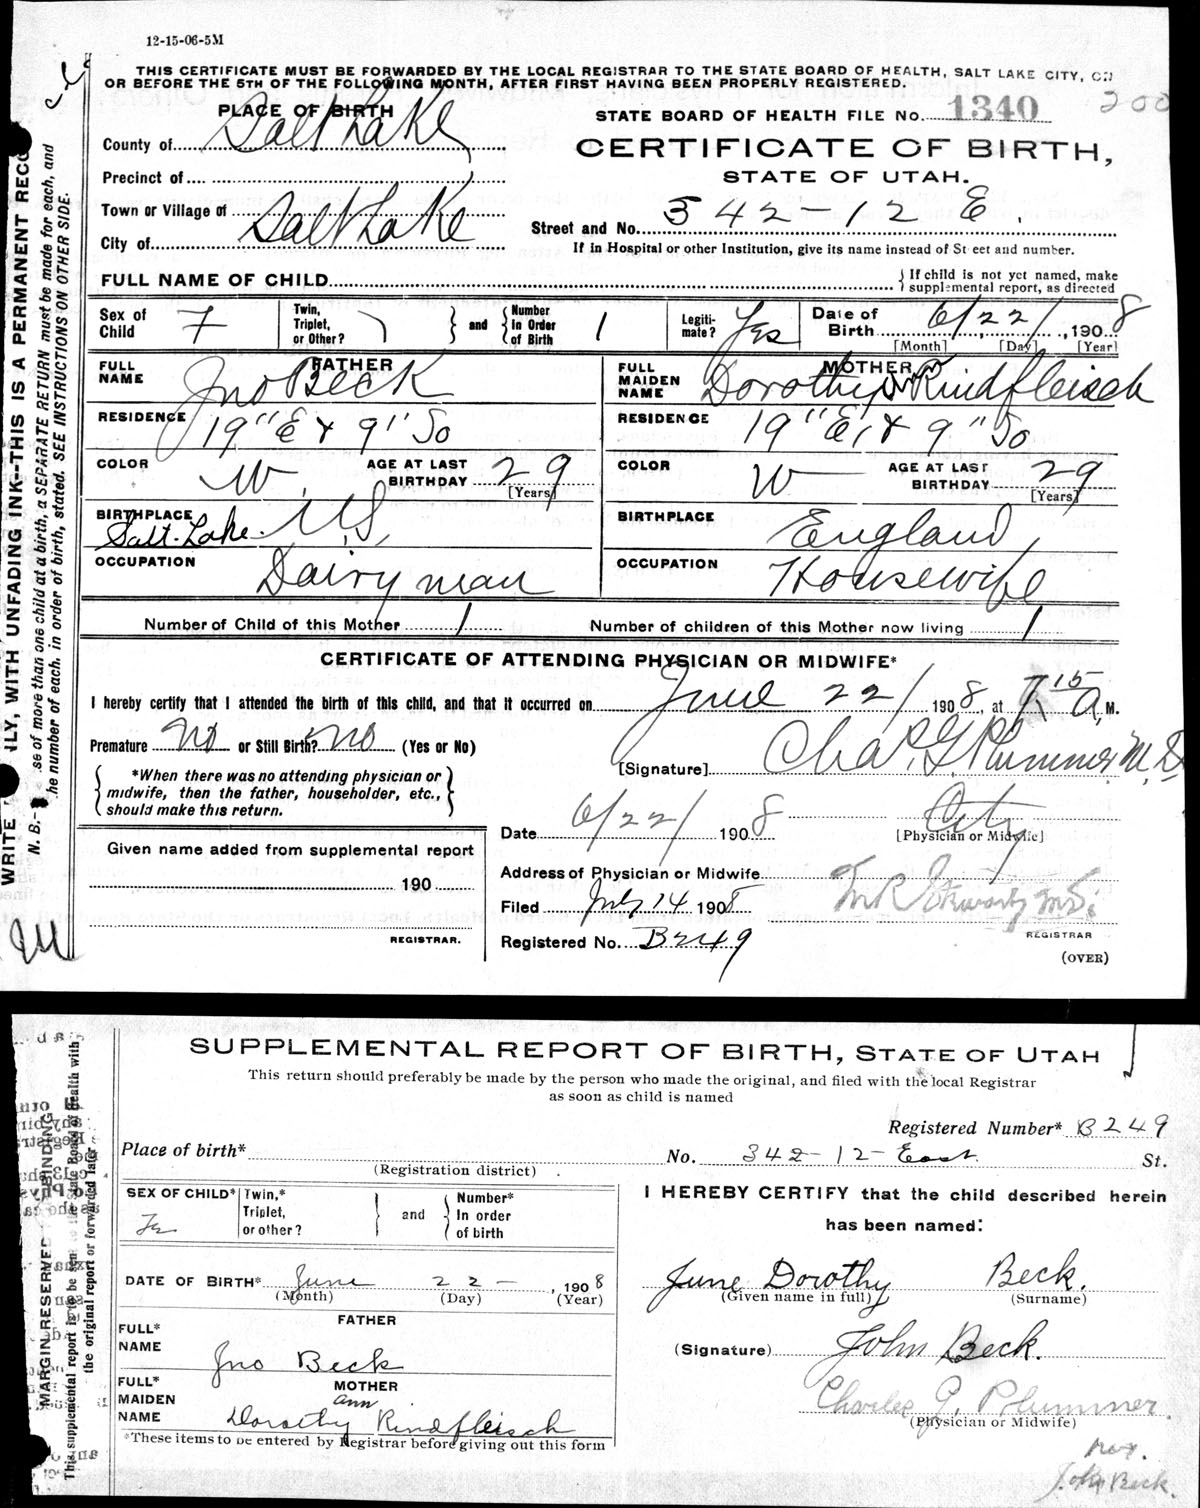 12-15-06-5M
THIS CERTIFICATE MUST BE FORWARDED BY THE LOCAL REGISTRAR TO THE STATE BOARD OF HEALTH, SALT LAKE CITY, ON
OR BEFORE THE 5TH OF THE FOLLOWING MONTH, AFTER FIRST HAVING BEEN PROPERLY REGISTERED.
200
PLACE OF BIRTH
STATE BOARD OF HEALTH FILE No. 1340
County of Salt Lake
CERTIFICATE OF BIRTH,
STATE OF UTAH.
Precinct of
Town or Village of
Street and No. 342-12 E.
City of Salt Lake
If in Hospital or other Institution, give its name instead of Street and number.
FULL NAME OF CHILD
If child is not yet named, make
supplemental report, as directed
Sex of Child F
Twin, Triplet, or Other?
and
Number in Order of Birth 1
Legitimate? Yes
Date of Birth 6/22/, 1908
[Month] [Day] [Year]
FATHER
FULL NAME Jno Beck
MOTHER
FULL MAIDEN NAME Dorothy Ann Rindfleisch
RESIDENCE 19" E & 9" So
RESIDENCE 19" E, & 9" So
COLOR W. AGE AT LAST BIRTHDAY 29 [Years]
COLOR W AGE AT LAST BIRTHDAY 29 [Years]
BIRTHPLACE Salt-Lake. U.S,
BIRTHPLACE England,
OCCUPATION Dairyman
OCCUPATION Housewife
Number of Child of this Mother 1
Number of children of this Mother now living 1
CERTIFICATE OF ATTENDING PHYSICIAN OR MIDWIFE*
I hereby certify that I attended the birth of this child, and that it occurred on June 22/ 1908, at 7 15 A, M.
Premature No or Still Birth? No (Yes or No)
*When there was no attending physician or
midwife, then the father, householder, etc.,
should make this return.
[Signature] Chas. G. Plummer M.D.
Date 6/22/ 1908
City
[Physician or Midwife]
Given name added from supplemental report
190
REGISTRAR.
Address of Physician or Midwife
Filed July 14 1908
M.D.
REGISTRAR
Registered No. B249
(OVER)
WRITE NLY, WITH UNFADING INK--THIS IS A PERMANENT RECO
N. B.- se of more than one child at a birth, a SEPARATE RETURN must be made for each, and
he number of each, in order of birth, stated. SEE INSTRUCTIONS ON OTHER SIDE.
SUPPLEMENTAL REPORT OF BIRTH, STATE OF UTAH
This return should preferably be made by the person who made the original, and filed with the local Registrar
as soon as child is named
Registered Number* B249
Place of birth* No. 342-12-East St.
(Registration district)
SEX OF CHILD*
Twin,* Triplet, or other?
and
Number* In order of birth
I HEREBY CERTIFY that the child described herein
has been named:
DATE OF BIRTH* June 22-, 1908
(Month) (Day) (Year)
June Dorothy Beck.
(Given name in full) (Surname)
FATHER
FULL* NAME Jno Beck
(Signature) John Beck.
MOTHER
FULL* MAIDEN NAME Dorothy Ann Rindfleisch
Charles G. Plummer.
(Physician or Midwife)
*These items to be entered by Registrar before giving out this form
John Beck.
MARGIN RESERVED BINDING
This supplemental report is to be sen the State Board of Health with
the original report or forwarded later